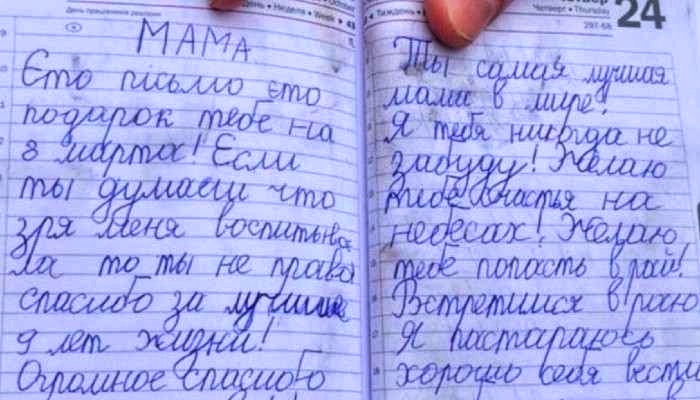 День працівників реклами
День • Неделя • Week • 43
МАМА
Єто пісьмо єто
подарок тебе на
8 марта! Єсли
ты думаєш что
зря меня воспитыва
ла то ты не права
спасибо за лучшие
9 лет жизни!
Огромное спасибо
• Тиждень •
Четверг • Thursday
24
297-68
Ты самая лучшая
мама в мире!
Я тебя никогда не
забуду! Желаю
тебе счастья на
небесах! Желаю
тебе попасть в рай!
Встретимся в раю
Я пастараюсь
хорошо себя вести